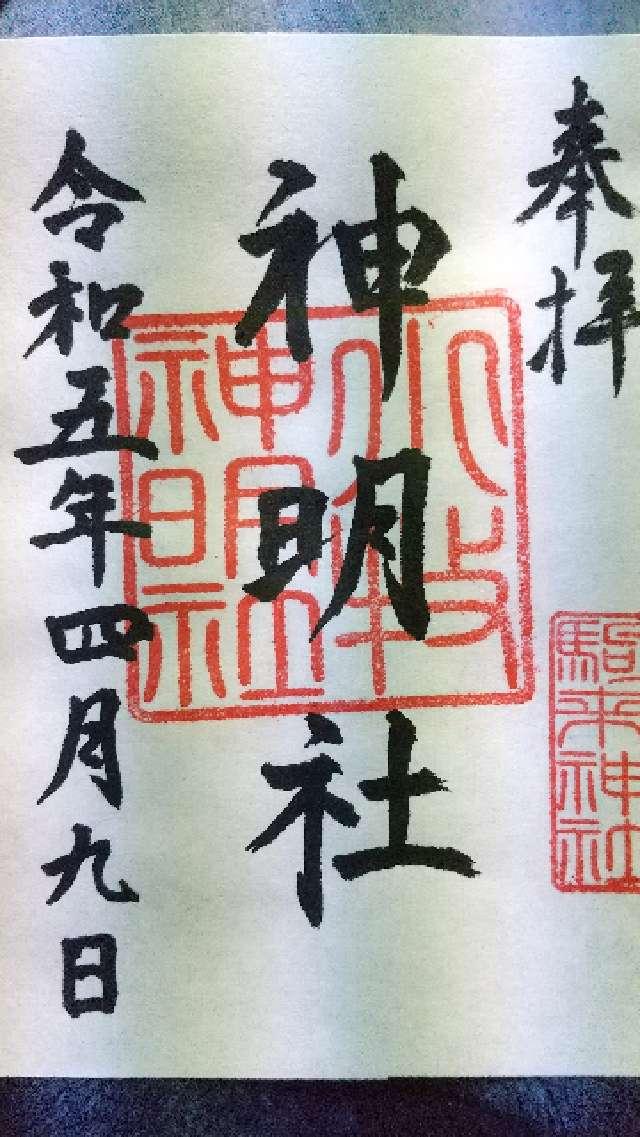 奉拝
駒来神社
神明社
小牧神明社
令和五年四月九日